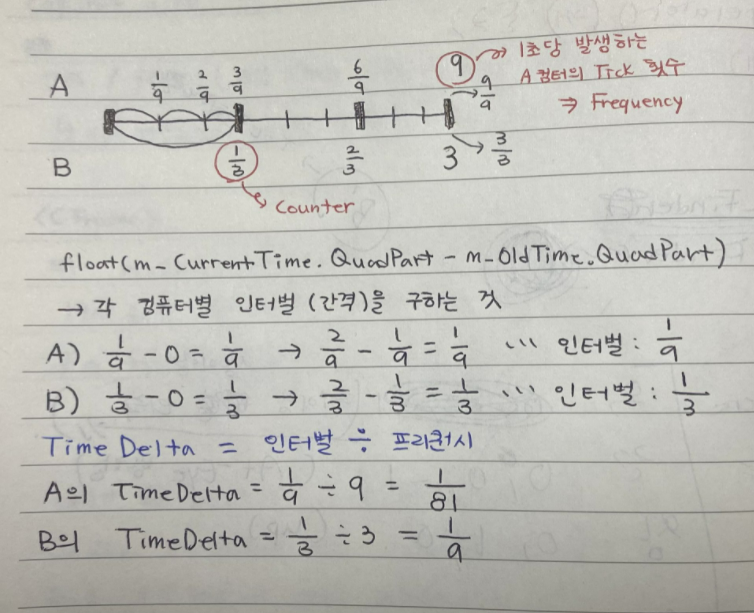 A 1/9 2/9 3/9 6/9 9 → 1초당 발생하는
9/9 A컴터의 Tick 횟수
⇒ Frequency
B 1/3 2/3 3 → 3/3
Counter
float(m_CurrentTime.QuadPart - m_OldTime.QuadPart)
→ 각 컴퓨터별 인터벌 (간격)을 구하는 것
A) 1/9 - 0 = 1/9 → 2/9 - 1/9 = 1/9 ... 인터벌 : 1/9
B) 1/3 - 0 = 1/3 → 2/3 - 1/3 = 1/3 ... 인터벌 : 1/3
Time Delta = 인터벌 ÷ 프리퀀시
A의 TimeDelta = 1/9 ÷ 9 = 1/81
B의 TimeDelta = 1/3 ÷ 3 = 1/9